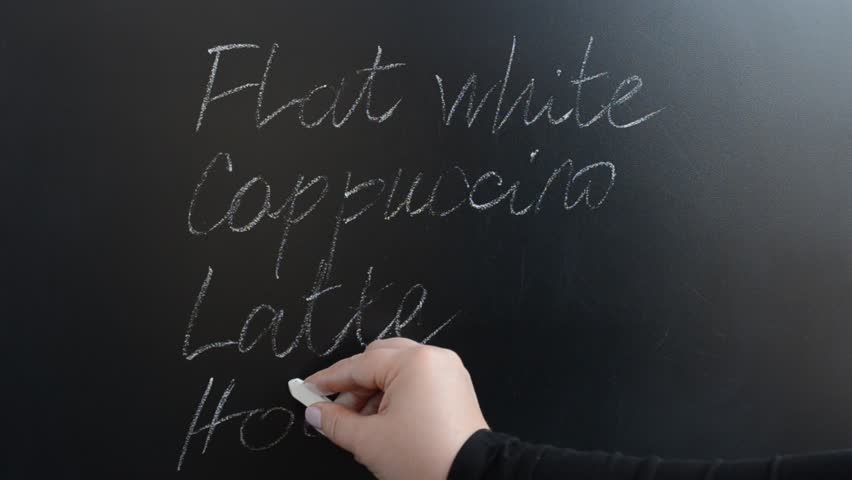 Flat white
Cappuccino
Latte
Ho